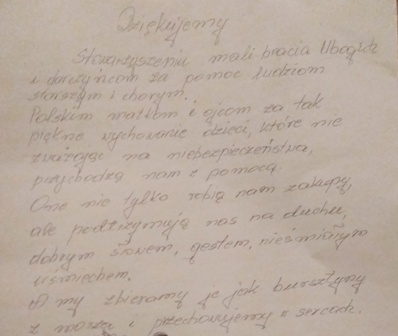 Dziękujemy
Stowarzyszeniu mali bracia Ubogich
i darczyńcom za pomoc ludziom
starszym i chorym.
Polskim matkom i ojcom za tak
piękne wychowanie dzieci, które nie
zważając na niebezpieczeństwa,
przychodzą nam z pomocą.
One nie tylko robią nam zakupy,
ale podtrzymują nas na duchu,
dobrym słowem, gestem, nieśmiałym
uśmiechem.
A my zbieramy je jak bursztyny
z morza i przechowujemy w sercach.